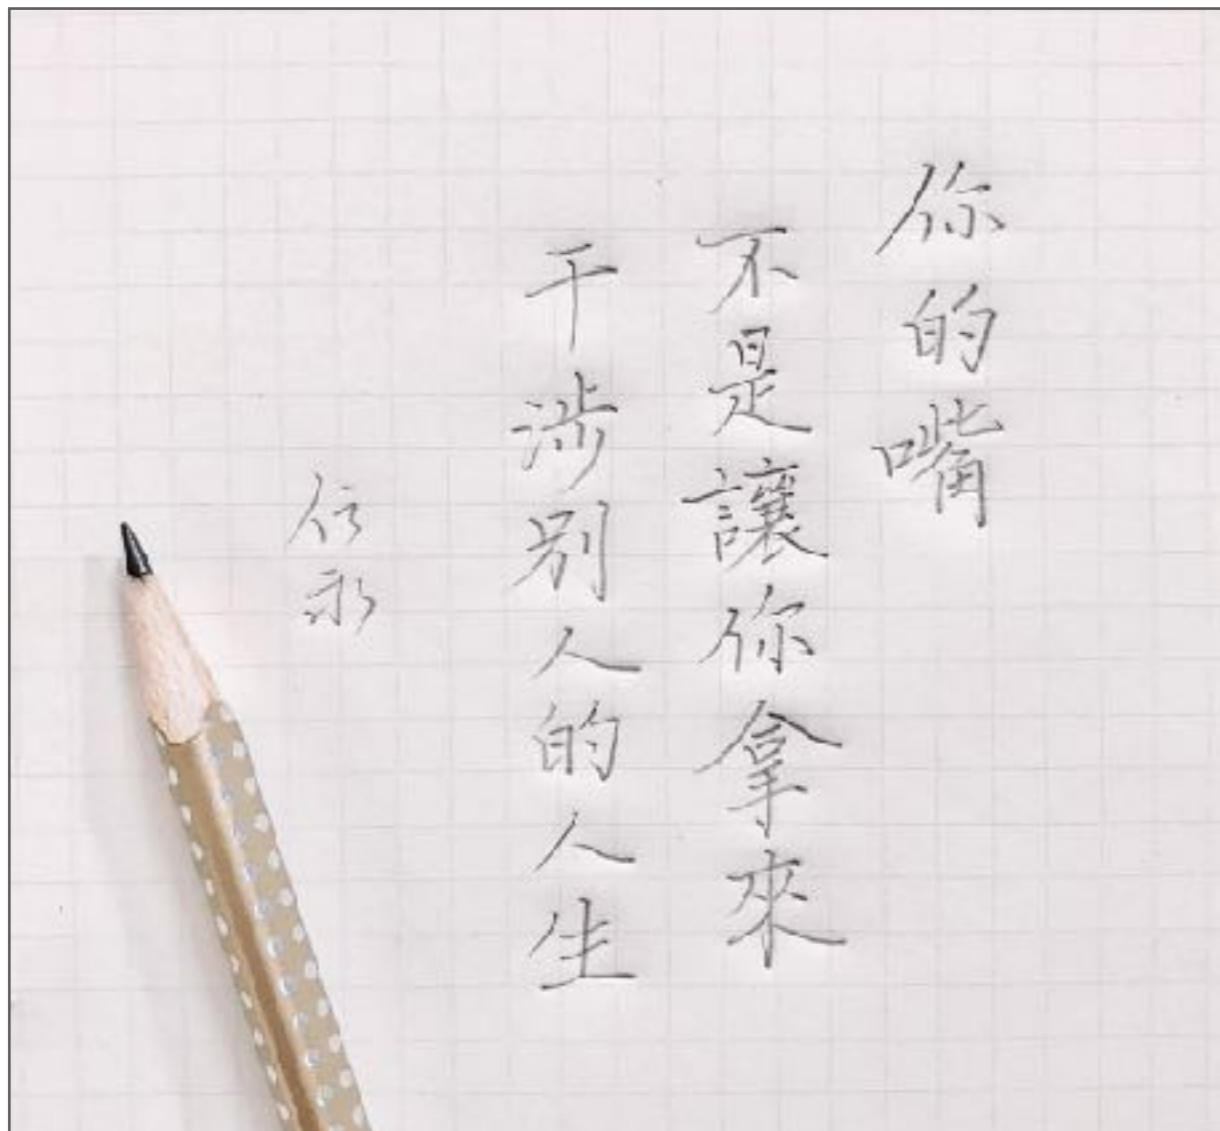 你的嘴
不是讓你拿來
干涉別人的人生